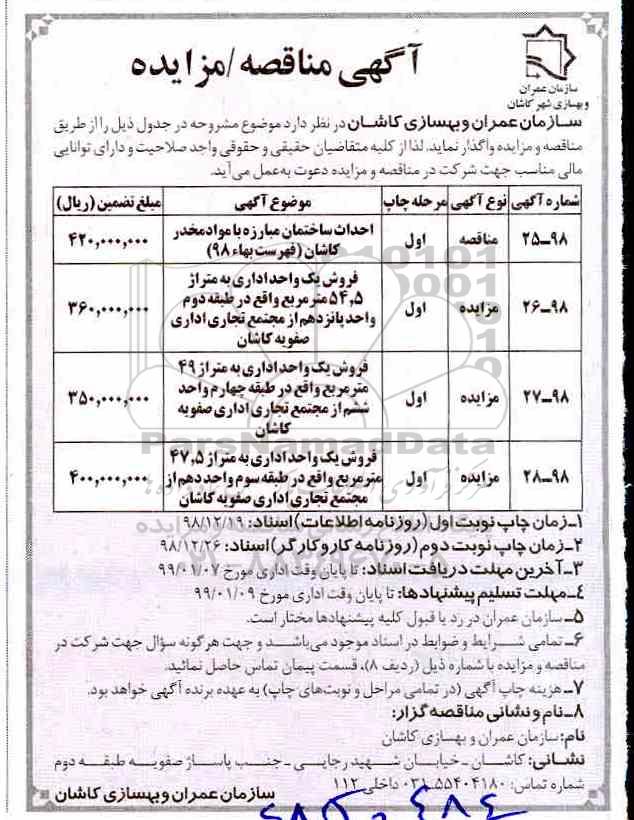 آگهی مناقصه/مزایده
سازمان عمران
و بهسازی شهر کاشان
سازمان عمران و بهسازی کاشان در نظر دارد موضوع مشروحه در جدول ذیل را از طریق
مناقصه و مزایده واگذار نماید. لذا از کلیه متقاضیان حقیقی و حقوقی واجد صلاحیت و دارای توانایی
مالی مناسب جهت شرکت در مناقصه و مزایده دعوت به‌عمل می‌آید.
شماره آگهی نوع آگهی مرحله چاپ موضوع آگهی مبلغ تضمین (ریال)
۹۸ـ۲۵ مناقصه اول احداث ساختمان مبارزه با مواد مخدر کاشان (فهرست بهاء ۹۸) ۴۲۰,۰۰۰,۰۰۰
۹۸ـ۲۶ مزایده اول فروش یک واحد اداری به متراژ ۵۴,۵ مترمربع واقع در طبقه دوم واحد پانزدهم از مجتمع تجاری اداری صفویه کاشان ۳۶۰,۰۰۰,۰۰۰
۹۸ـ۲۷ مزایده اول فروش یک واحد اداری به متراژ ۴۹ مترمربع واقع در طبقه چهارم واحد ششم از مجتمع تجاری اداری صفویه کاشان ۳۵۰,۰۰۰,۰۰۰
۹۸ـ۲۸ مزایده اول فروش یک واحد اداری به متراژ ۴۷,۵ مترمربع واقع در طبقه سوم واحد دهم از مجتمع تجاری اداری صفویه کاشان ۴۰۰,۰۰۰,۰۰۰
ParsNamadData
۱ـ زمان چاپ نوبت اول (روزنامه اطلاعات) اسناد: ۹۸/۱۲/۱۹
۲ـ زمان چاپ نوبت دوم (روزنامه کار و کارگر) اسناد: ۹۸/۱۲/۲۶
۳ـ آخرین مهلت دریافت اسناد: تا پایان وقت اداری مورخ ۹۹/۰۱/۰۷
۴ـ مهلت تسلیم پیشنهادها: تا پایان وقت اداری مورخ ۹۹/۰۱/۰۹
۵ـ سازمان عمران در رد یا قبول کلیه پیشنهادها مختار است.
۶ـ تمامی شرایط و ضوابط در اسناد موجود می‌باشد و جهت هرگونه سؤال جهت شرکت در
مناقصه و مزایده با شماره ذیل (ردیف ۸)، قسمت پیمان تماس حاصل نمائید.
۷ـ هزینه چاپ آگهی (در تمامی مراحل و نوبت‌های چاپ) به عهده برنده آگهی خواهد بود.
۸ـ نام و نشانی مناقصه گزار:
نام: سازمان عمران و بهسازی کاشان
نشانی: کاشان ـ خیابان شهید رجایی ـ جنب پاساژ صفویه طبقه دوم
شماره تماس: ۵۵۴۰۴۱۸۰ـ۰۳۱ داخلی ۱۱۲
سازمان عمران و بهسازی کاشان